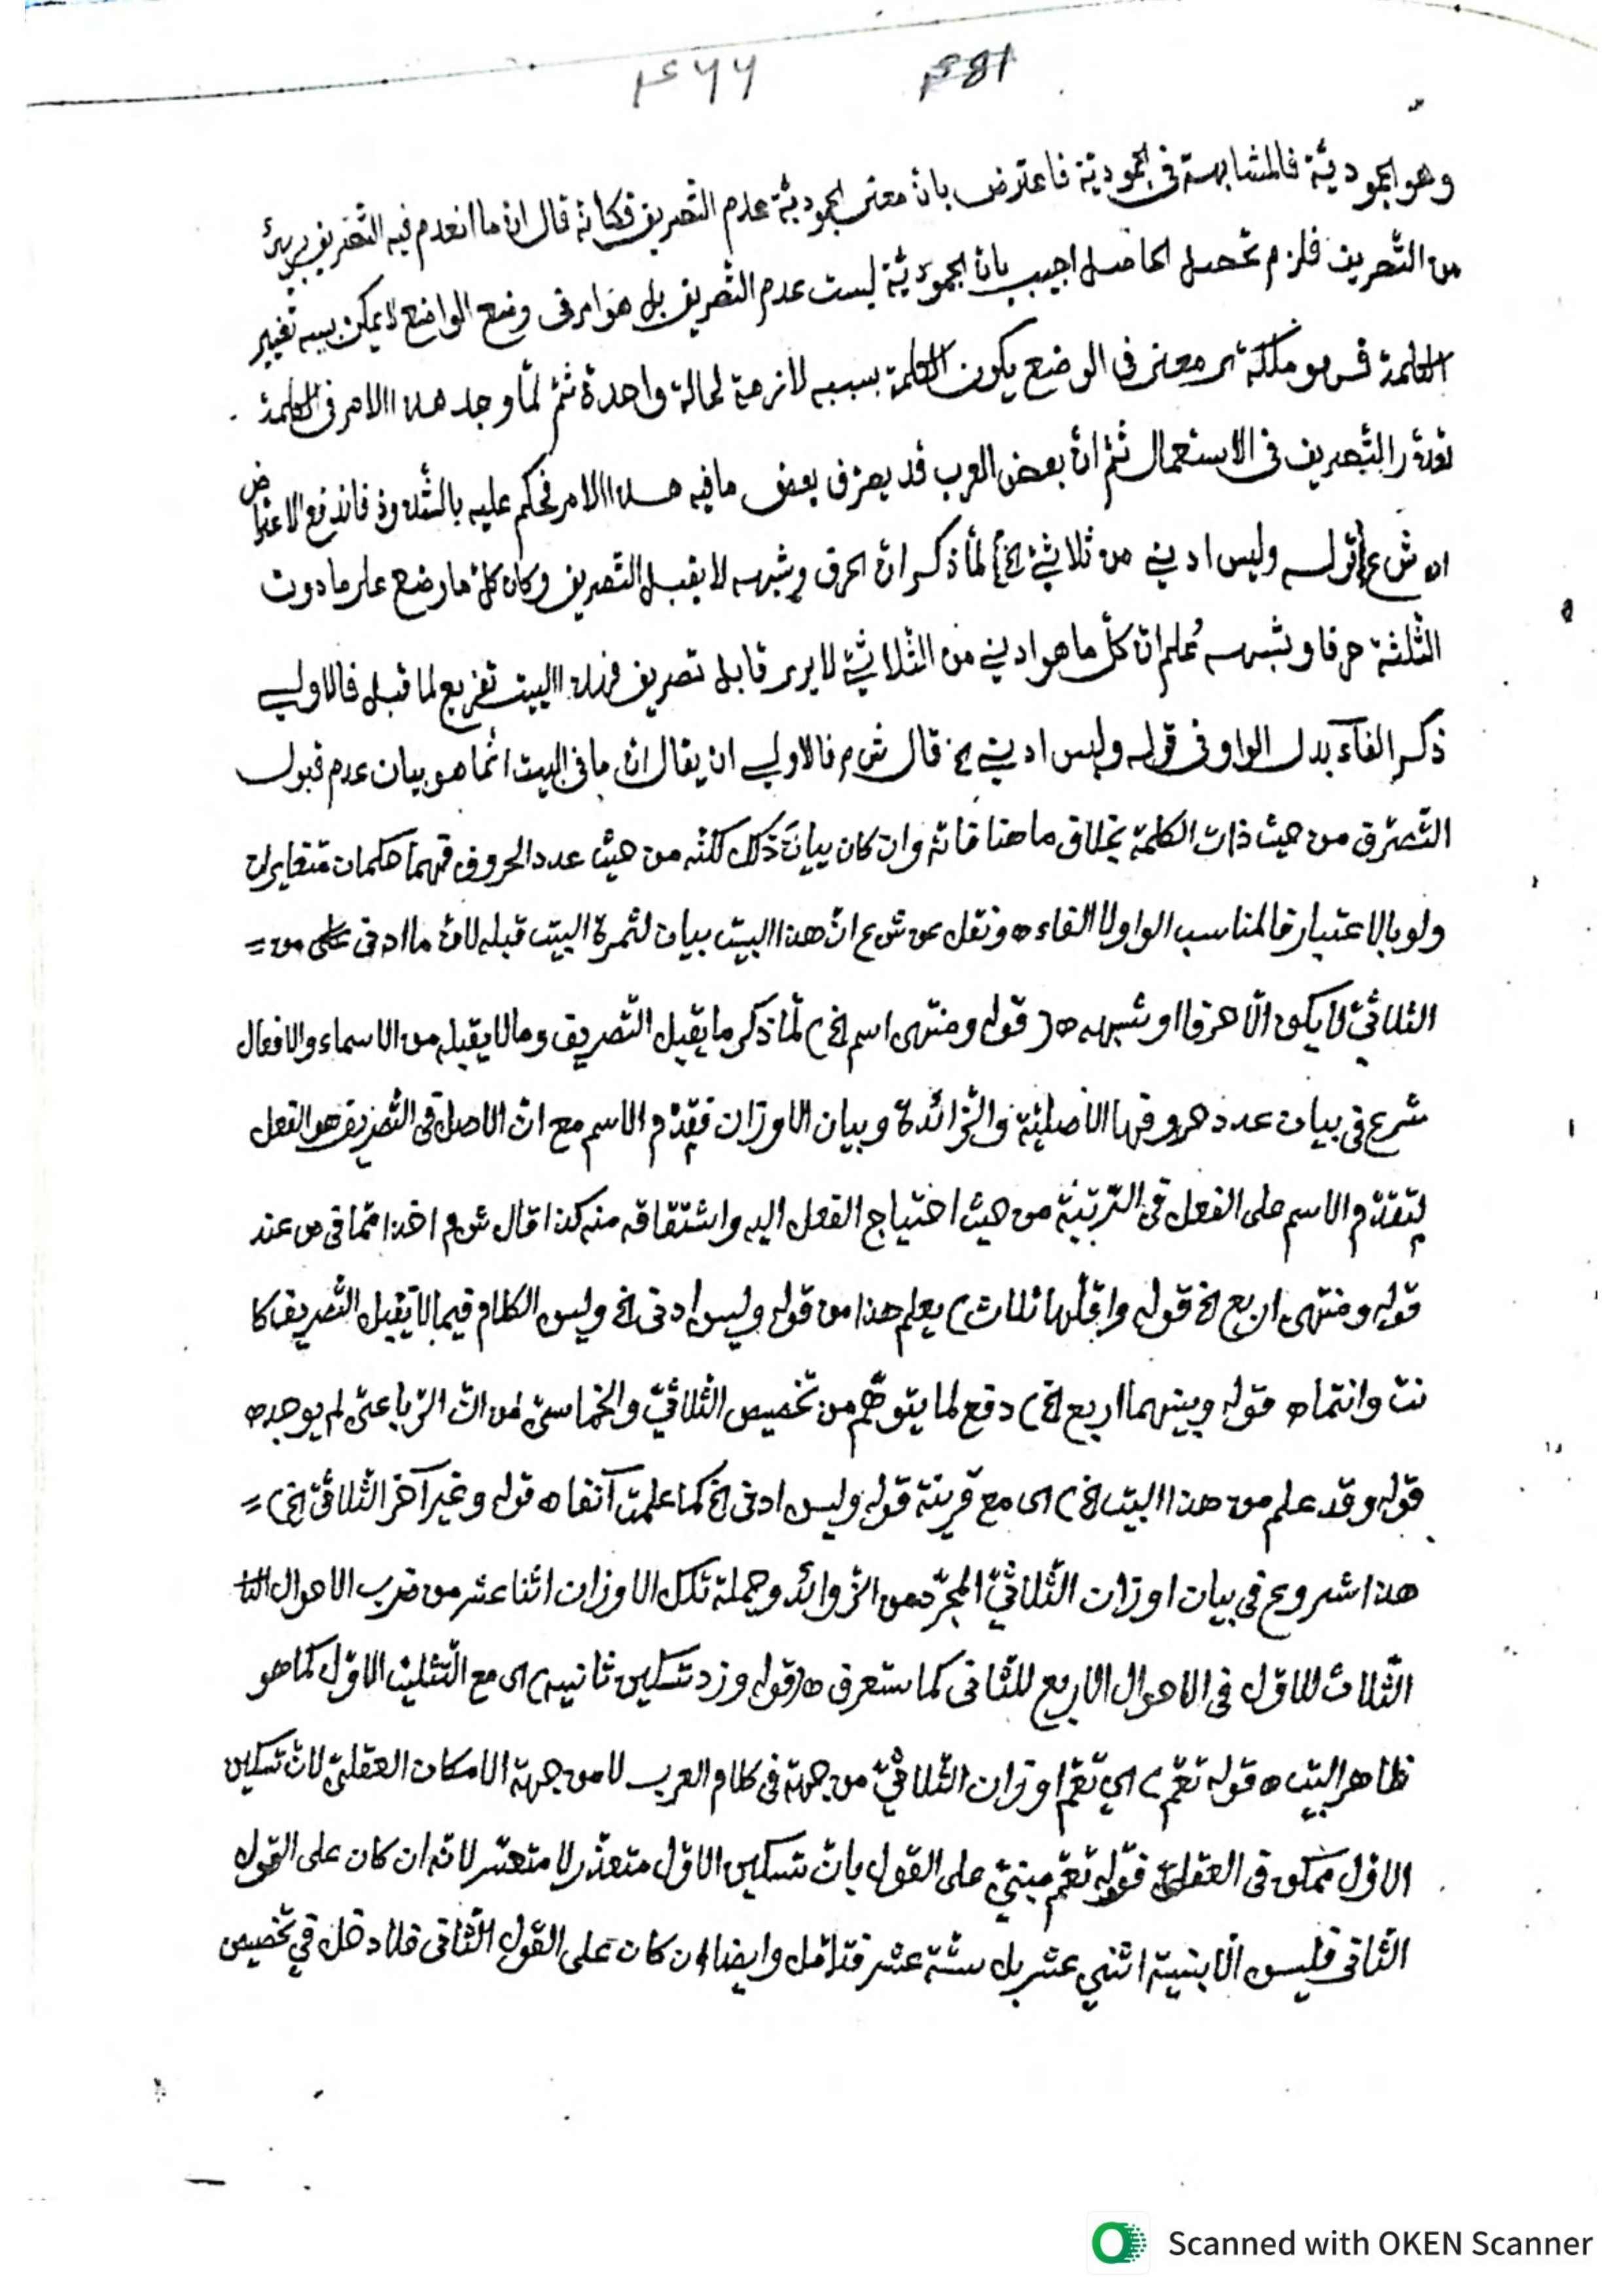 ۴۶۶ ۴81
وهو الجموديّة فالمشابهة فى الجموديّة فاعترض بانّ معنى الجموديّة عدم التّصريف فكانّه قال انّ ما انعدم فيه التّصريف برىّ
من التّصريف فلزم تحصيل الحاصل اجيب بانّ الجموديّة ليست عدم التّصريف بل هو امر فى وضع الواضع لا يمكن بسببه تغيير
الكلمة فهو ملكة اى معنى فى الوضع يكون الكلمة بسببه لازمة لحالة واحدة ثمّ لمّا وجد هذا الامر فى الكلمة
تعذّر التّصريف فى الاستعمال ثمّ انّ بعض العرب قد يصرف بعض ما فيه هذا الامر فحكم عليه بالشّذوذ فاندفع الاعتراض
اه ش ع (قوله وليس ادنى من ثلاثيّ الخ) لمّا ذكر انّ الحرف وشبهه لا يقبل التّصريف وكان كلّ ما وضع على ما دون
الثّلثة حرفا وشبهه عُلم انّ كلّ ما هو ادنى من الثّلاثيّ لا يرى قابل تصريف فهذا البيت تفريع لما قبله فالاولى
ذكر الفآء بدل الواو فى قوله وليس ادنى الخ قال ش م فالاولى ان يقال انّ ما فى البيت انّما هو بيان عدم قبول
التّصرّف من حيث ذات الكلمة بخلاف ما هنا فانّه وان كان بيانَ ذلك لكنّه من حيث عدد الحروف فهما حكمان متغايران
ولو بالاعتبار فالمناسب الواو لا الفاء ه ونقل عن ش ع انّ هذا البيت بيان لثمرة البيت قبله لانّ ما ادنى من =
الثلاثيّ لا يكون الّا حرفا او شبهه ه (قوله ومنتهى اسم الخ) لمّا ذكر ما يقبل التّصريف وما لا يقبله من الاسماء والافعال
شرع فى بيان عدد حروفها الأصليّة والزّائدة وبيان الاوزان فقدّم الاسم مع انّ الاصل فى التّصريف هو الفعل
لتقدّم الاسم على الفعل فى التّرتبة من حيث احتياج الفعل اليه واشتقاقه منه كذا قال ش م اخذا ممّا فى ص عند
قوله ومنتهى اربع الخ قوله واقلّها ثلاث) يعلم هذا من قوله وليس ادنى الخ وليس الكلام فيما لا يقبل التّصريف كا
نت وانتما ه قوله وبينهما اربع الخ) دفع لما يتوهّم من تخصيص الثّلاثيّ والخماسيّ من انّ الرّباعىّ لم يوجد ه
قوله وقد علم من هذا البيت الخ) اى مع قرينة قوله وليس ادنى الخ كما علمت آنفا ه قوله وغير آخر الثّلاثيّ الخ) =
هذا شروع فى بيان اوزان الثّلاثيّ المجرّد من الزّوائد وجملة تلك الاوزان اثنا عشر من ضرب الاحوال
الثّلاث للاوّل فى الاحوال الاربع للثّانى كما ستعرف ه (قوله وزد تسكين ثانيه) اى مع التّثليث الاوّل كما هو
ظاهر البيت ه قوله تعمّ) اي تعمّ اوزان الثّلاثيّ من جهة فى كلام العرب لا من جهة الامكان العقليّ لانّ تسكين
الاوّل ممكن فى العقل فقوله تعمّ مبنيّ على القول بانّ تسكين الاوّل متعذّر لا متعسّر لانّه ان كان على القول
الثّانى فليس الأبنية اثني عشر بل ستّة عشر فتأمّل وايضا ان كان على القول الثّانى فلا دخل في تخصيص
Scanned with OKEN Scanner